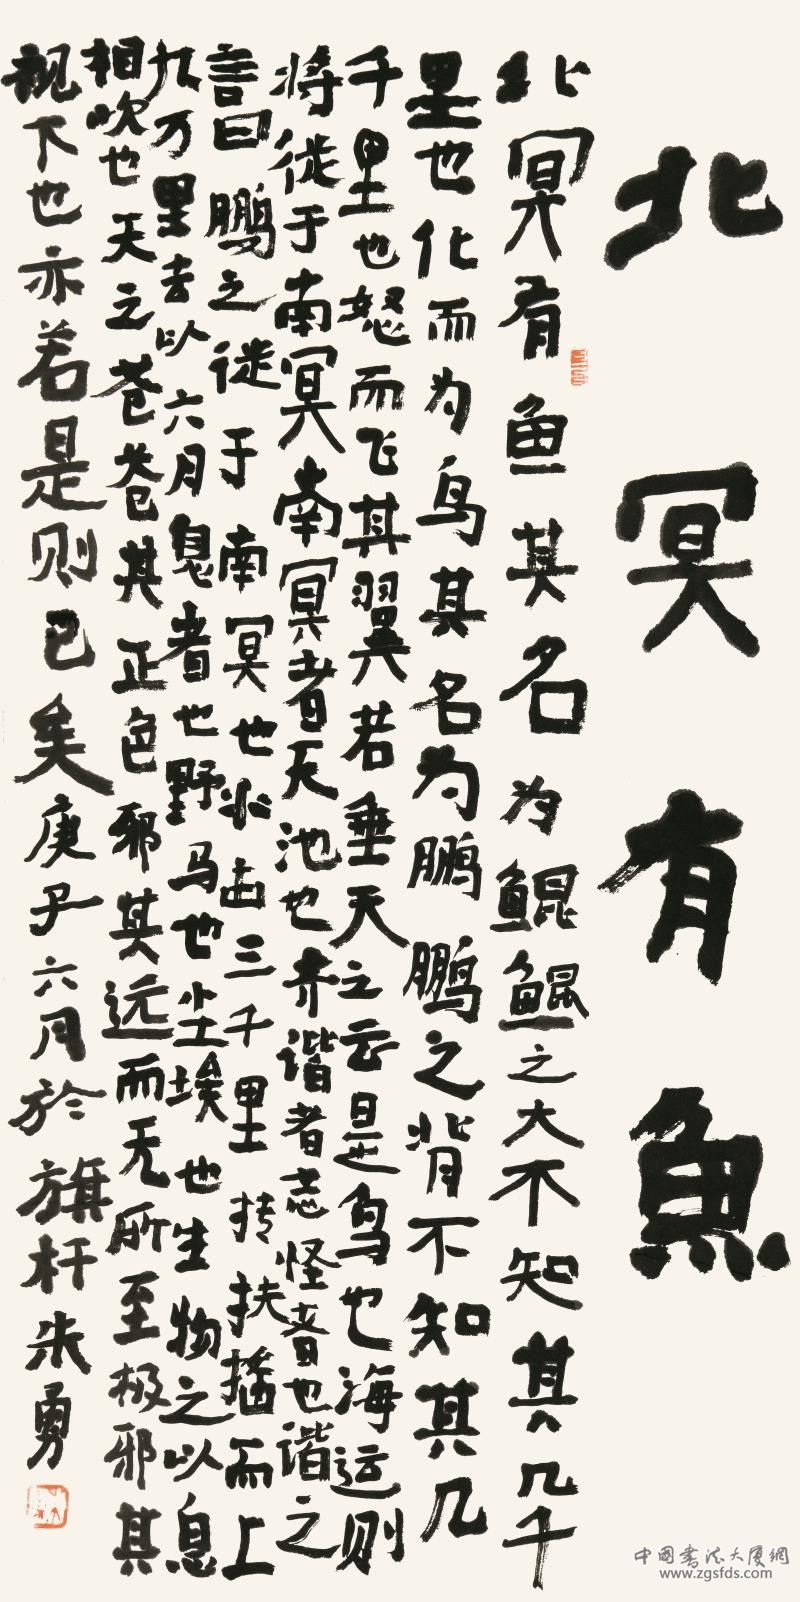 北冥有魚
北冥有鱼其名为鲲鲲之大不知其几千
里也化而为鸟其名为鹏鹏之背不知其几
千里也怒而飞其翼若垂天之云是鸟也海运则
将徙于南冥南冥者天池也齐谐者志怪者也谐之
言曰鹏之徙于南冥也水击三千里抟扶摇而上
九万里去以六月息者也野马也尘埃也生物之以息
相吹也天之苍苍其正色邪其远而无所至极邪其
视下也亦若是则已矣庚子六月於旗杆朱勇
中國書法大厦網
www.zgsfds.com